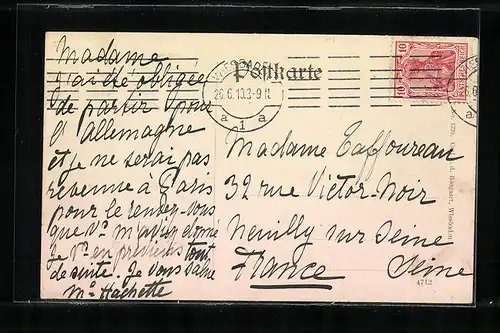 Madame
j'ai été obligée
de partir pour
l'Allemagne
et je ne serai pas
revenue à Paris
pour le rendez-vous
que vs m'aviez donné
je vs en préviens tout
de suite. Je vous salue
Me Hachette
Postkarte
26.6.10.8-9 N.
a 1 a
10 10
Madame Taffoureau
32 rue Victor-Noir
Neuilly sur Seine
France Seine
4712